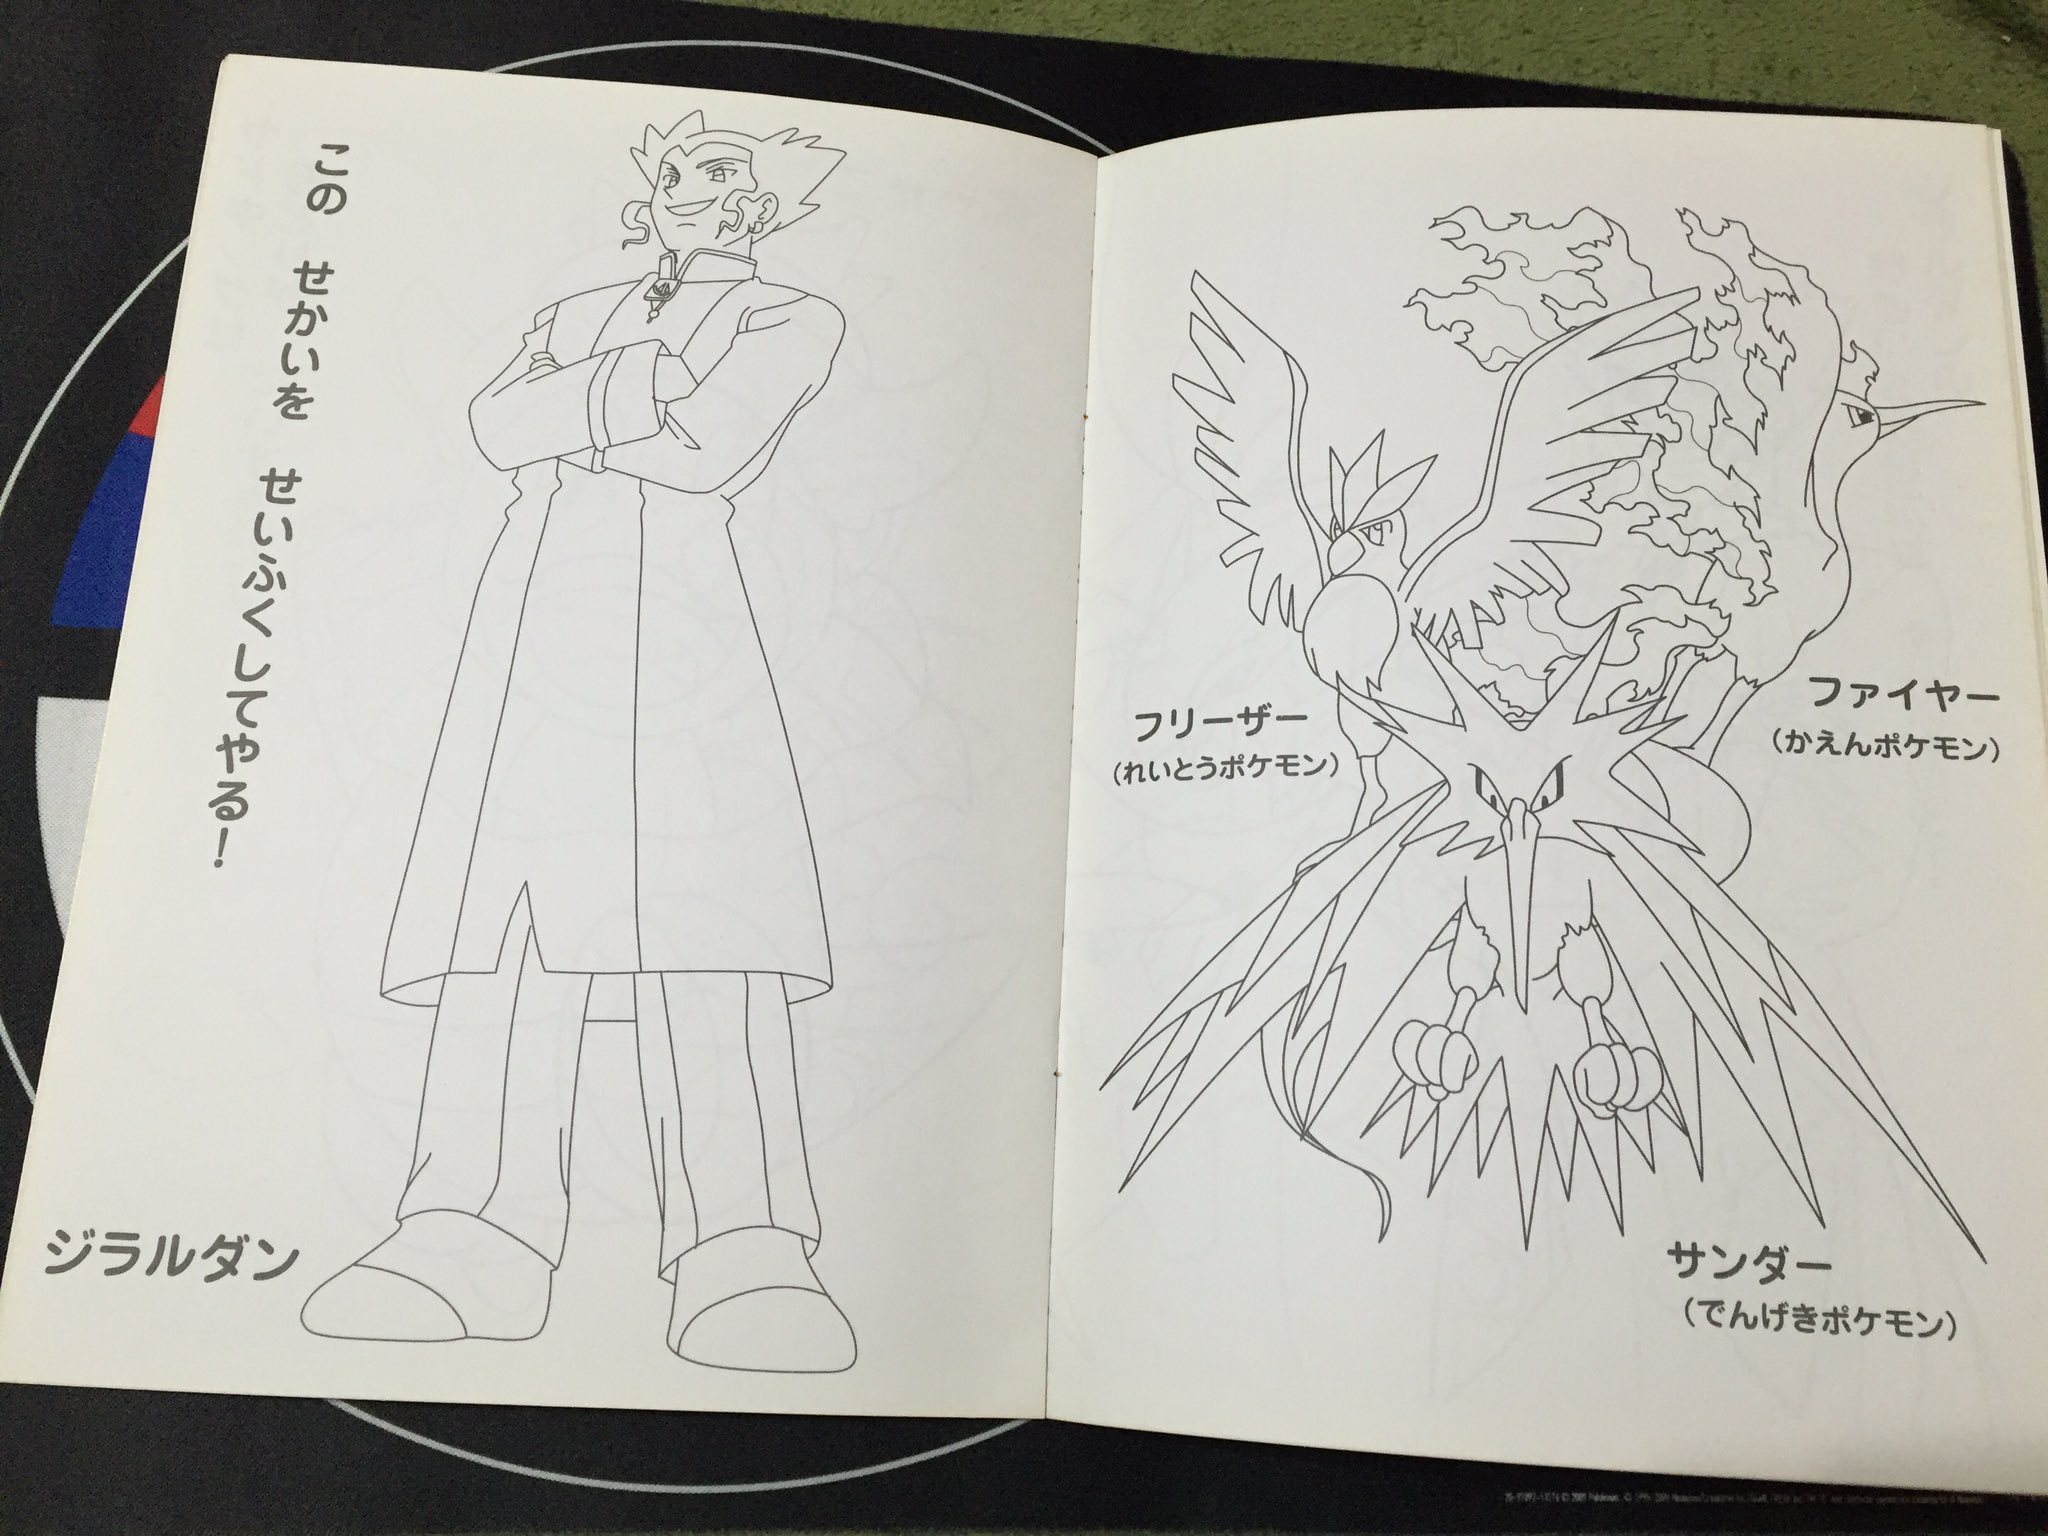 この せかいを せいふくしてやる!
ジラルダン
ファイヤー
(かえんポケモン)
フリーザー
(れいとうポケモン)
サンダー
(でんげきポケモン)